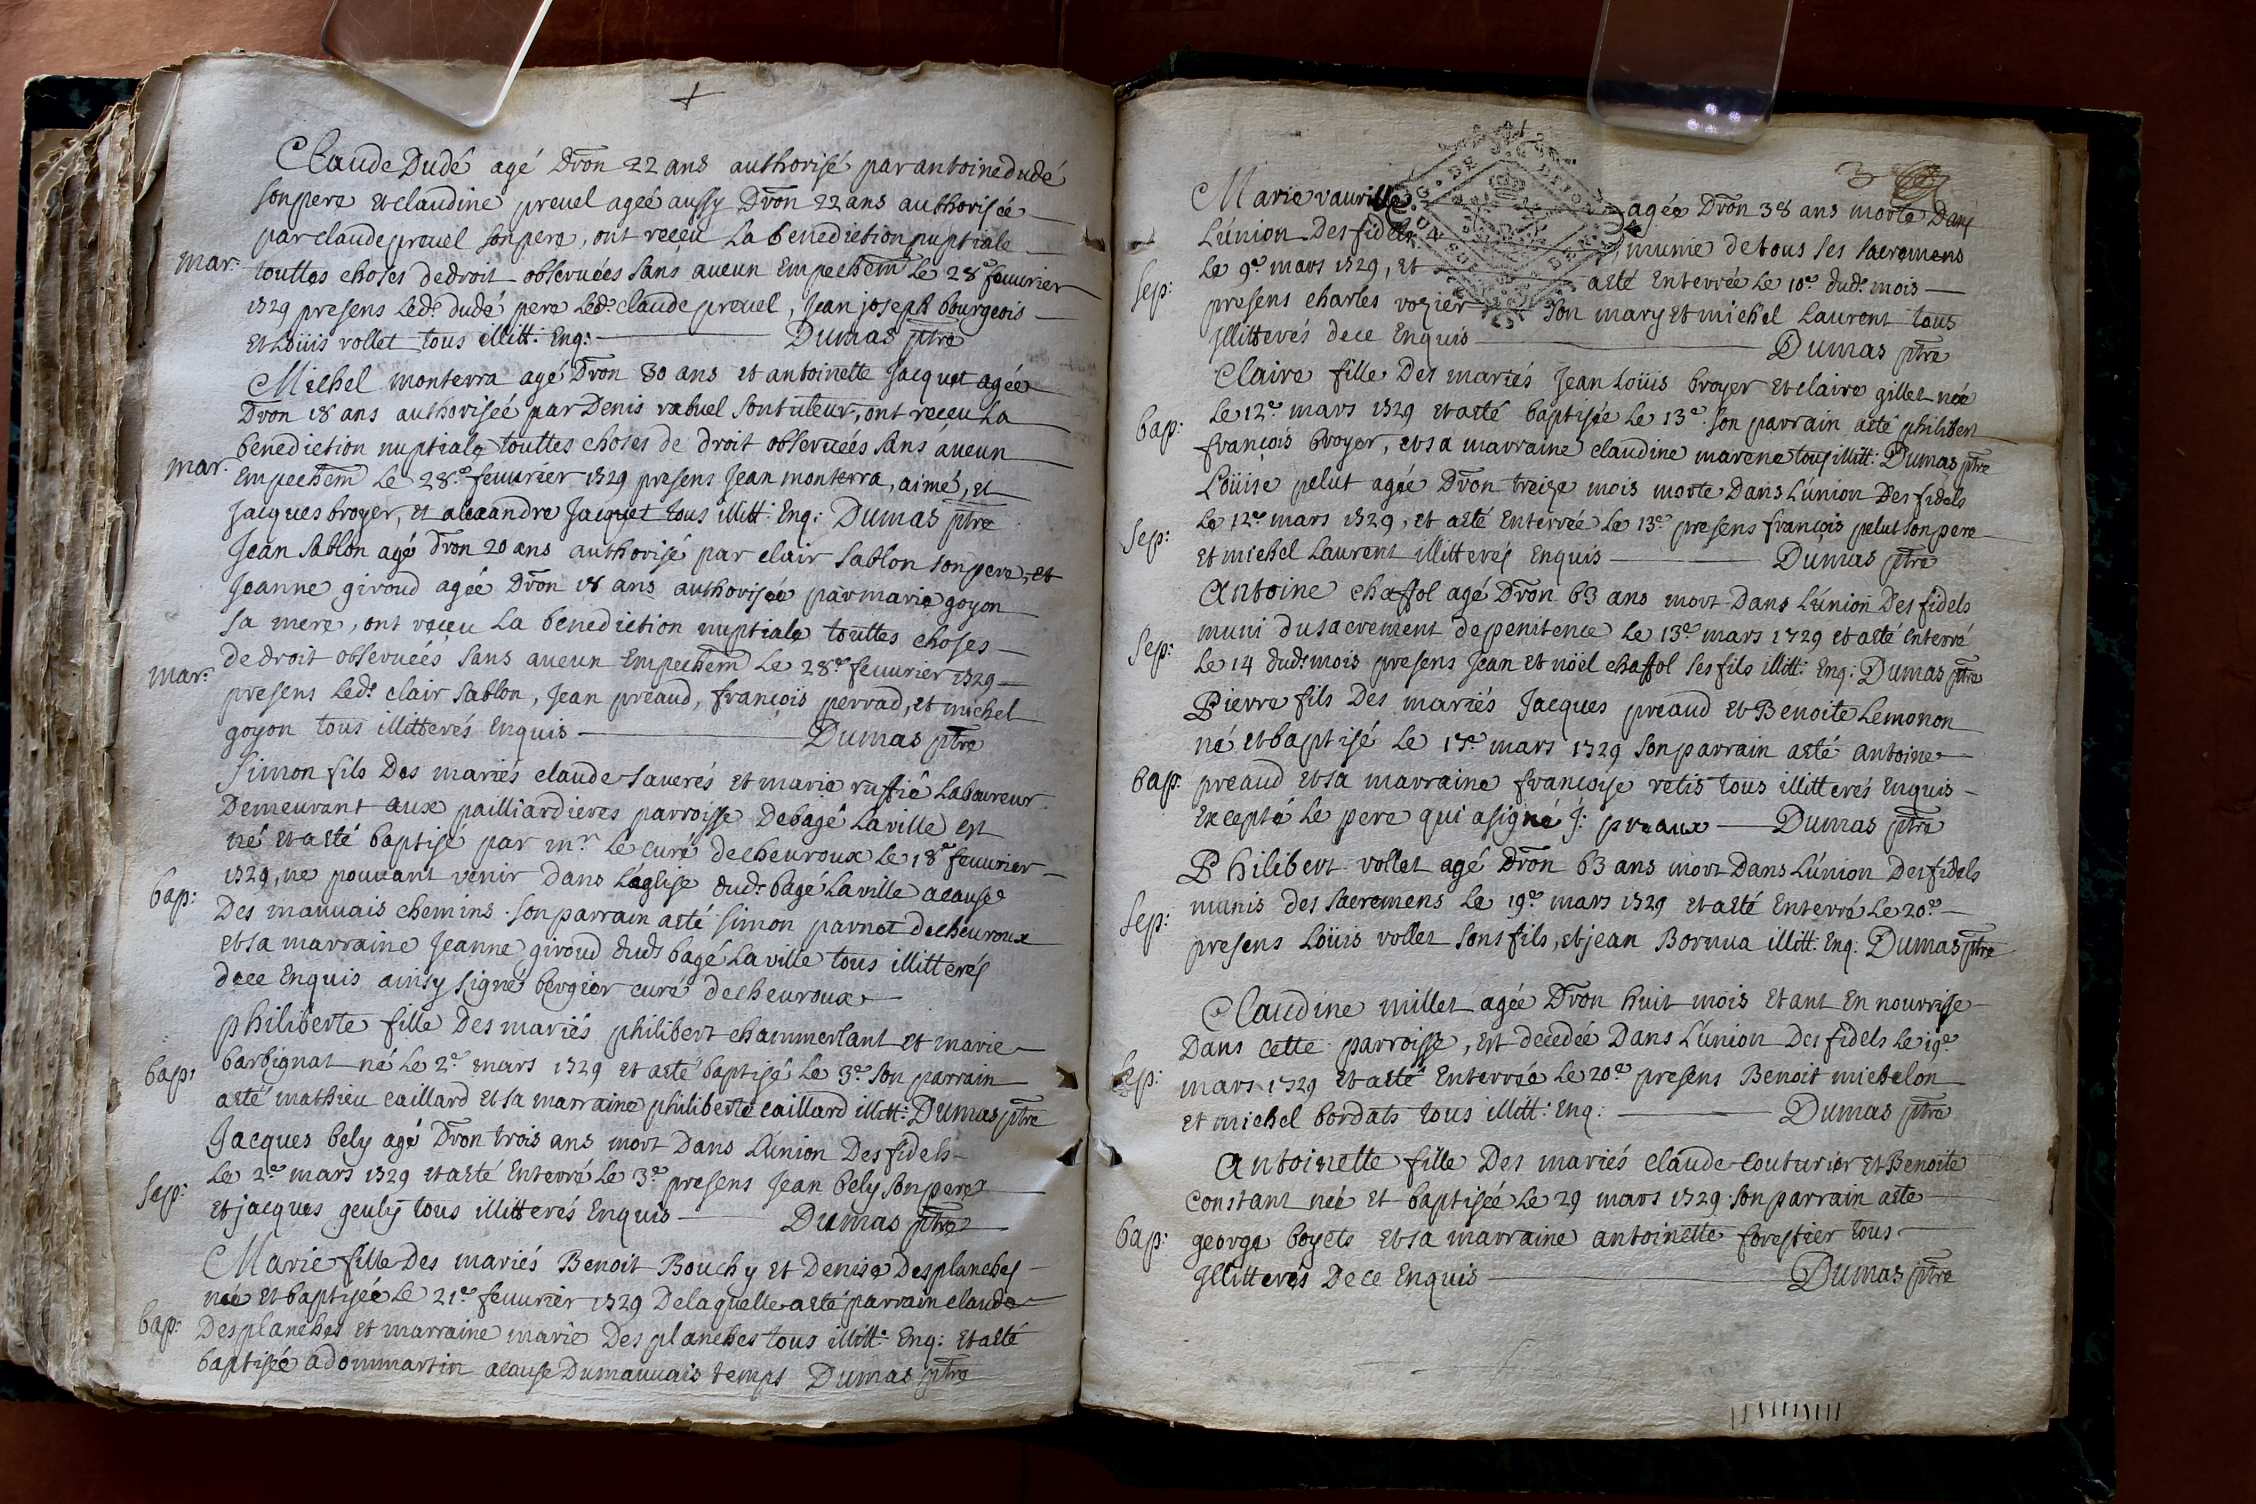 Claude Dudé agé Dron 22 ans authorisé par antoine dudé
son pere et claudine preuel ageé aussy Dron 22 ans authorisée
par claude preuel son pere, ont reçeu La benediction nuptiale
mar: touttes choses de droit obseruées sans aucun Empechem Le 28e feuurier
1729 presens Led. dudé pere Led. claude preuel, Jean joseph bourgeois
et Loüis vollet tous illitt: Enq: Dumas ptre
Michel monterra agé Dron 30 ans et antoinette Jacquet agée
Dron 18 ans authoriseé par Denis rabuel son tuteur, ont reçeu La
benediction nuptiale touttes choses de droit obseruées sans aucun
mar. Empechem Le 28e feuurier 1729 presens Jean monterra, aimé, et
Jacques broyer, et alexandre Jacquet tous illitt: Enq: Dumas ptre
Jean Sablon agé Dron 20 ans authorisé par clair Sablon son pere, et
Jeanne giroud agée Dron 18 ans authorisée par marie goyon
sa mere, ont reçeu La benediction nuptiale touttes choses
mar: de droit obseruées sans aucun Empechem Le 28e feuurier 1729
presens Led. clair Sablon, Jean preaud, françois perrad, et michel
goyon tous illitterés Enquis Dumas ptre
Simon fils Des mariés claude saverés et marie ruffié Laboureur
Demeurant aux pailliardieres parroisse De bagé La ville est
né et a eté baptisé par mr. Le curé de cheuroux Le 18e feuurier
bap: 1729, ne pouuant venir dans L'eglise dud. bagé La ville a cause
Des mauuais chemins. son parrain a eté simon parnet de cheuroux
et sa marraine Jeanne giroud dud. bagé La ville tous illitterés
de ce Enquis ainsy signé bergier curé de cheuroux
philiberte fille Des mariés philibert chammerlant et marie
bap: barbignat né Le 2e mars 1729 et a eté baptisé Le 3e son parrain
a eté mathieu caillard et sa marraine philiberte caillard illitt: Dumas ptre
Jacques bely agé Dron trois ans mort Dans L'union Des fidels
sep: Le 2e mars 1729 et a eté Enterré Le 3e presens Jean bely son pere
et jacques geuly tous illitterés Enquis Dumas ptre
Marie fille Des mariés Benoit Bouchy et Denise Desplanches
neé et baptiseé Le 21e feuurier 1729 De laquelle a eté parrain claude
bap: Desplanches et marraine marie Des planches tous illitt: Enq: et a eté
baptisée a dommartin a cause Du mauuais temps Dumas ptre
3
Marie vaurille agée Dron 38 ans morte Dans
L'union Des fidels munie de tous ses sacremens
sep: Le 9e mars 1729, et a eté Enterrée Le 10e dud. mois
presens charles vozier son mary et michel Laurent tous
illitterés de ce Enquis Dumas ptre
Claire fille Des mariés Jean Loüis broyer et claire gillet née
bap: Le 12e mars 1729 et a eté baptisée Le 13e. son parrain a eté philibert
françois broyer, et sa marraine claudine marene tous illitt: Dumas ptre
Loüise pelut agée Dron treize mois morte Dans L'union Des fidels
sep: Le 12e mars 1729, et a eté Enterrée Le 13e presens françois pelut son pere
et michel Laurent illitterés Enquis Dumas ptre
Antoine chaffol agé Dron 63 ans mort Dans L'union Des fidels
sep: muni du sacrement de penitence Le 13e mars 1729 et a eté enterré
Le 14 dud. mois presens Jean et noël chaffol ses fils illitt: Enq: Dumas ptre
Pierre fils Des mariés Jacques preaud et Benoite Lemonon
né et baptisé Le 17e mars 1729 son parrain a eté antoine
bap: preaud et sa marraine françoise retis tous illitterés Enquis
Excepté Le pere qui a signé J: preaux Dumas ptre
Philibert vollet agé Dron 63 ans mort Dans L'union Des fidels
sep: munis des sacremens Le 19e mars 1729 et a eté Enterré Le 20e
presens Loüis vollet sons fils, et jean Borrua illitt: Enq: Dumas ptre
Claudine millet agée Dron huit mois Etant En nourrisse
Dans cette parroisse, Est decedée Dans L'union Des fidels Le 19e
sep: mars 1729 et a eté Enterrée Le 20e presens Benoit michelon
et michel bordats tous illitt: Enq: Dumas ptre
Antoinette fille Des mariés claude Couturier et Benoite
Constant neé et baptisée Le 29 mars 1729 son parrain a eté
bap: george boyets et sa marraine antoinette forestier tous
Jllitterés De ce Enquis Dumas ptre